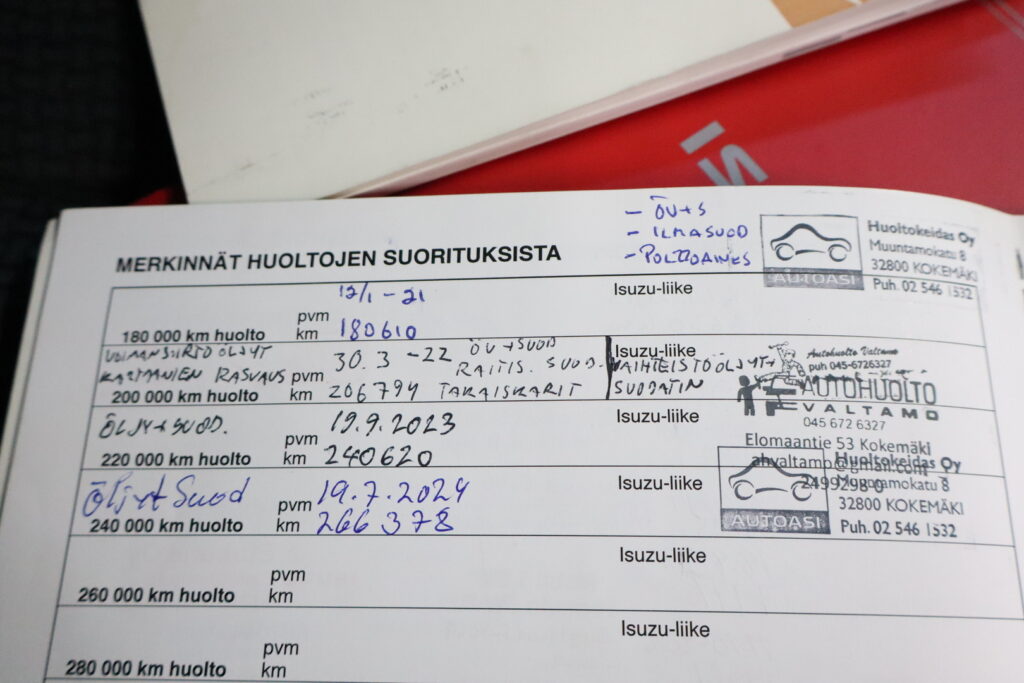 IS
- ÖV+S
- ILMASUOD
- POLTTOAINES
AUTOASI
Huoltokeidas Oy
Muuntamokatu 8
32800 KOKEMÄKI
Puh. 02 546 1532
MERKINNÄT HUOLTOJEN SUORITUKSISTA
180 000 km huolto
pvm 12/1 - 21
km 180610
Isuzu-liike
VOIMANSIIRTO ÖLJYT
KARMANIEN RASVAUS
200 000 km huolto
pvm 30.3 -22 ÖV+SUOD
RAITIS. SUOD.
km 206794 TAKAISKARIT
Isuzu-liike
VAIHTEISTOÖLJYT+
SUODATIN
Autohuolto Valtamo
puh 045-6726327
AUTOHUOLTO
VALTAMO
045 672 6327
Elomaantie 53 Kokemäki
ahvaltamo@gmail.com
2499298-0
ÖLJY+SUOD.
220 000 km huolto
pvm 19.9.2023
km 240620
Isuzu-liike
Öljyt Suod
240 000 km huolto
pvm 19.7.2024
km 266378
Isuzu-liike
AUTOASI
Huoltokeidas Oy
Muuntamokatu 8
32800 KOKEMÄKI
Puh. 02 546 1532
260 000 km huolto
pvm
km
Isuzu-liike
280 000 km huolto
pvm
km
Isuzu-liike